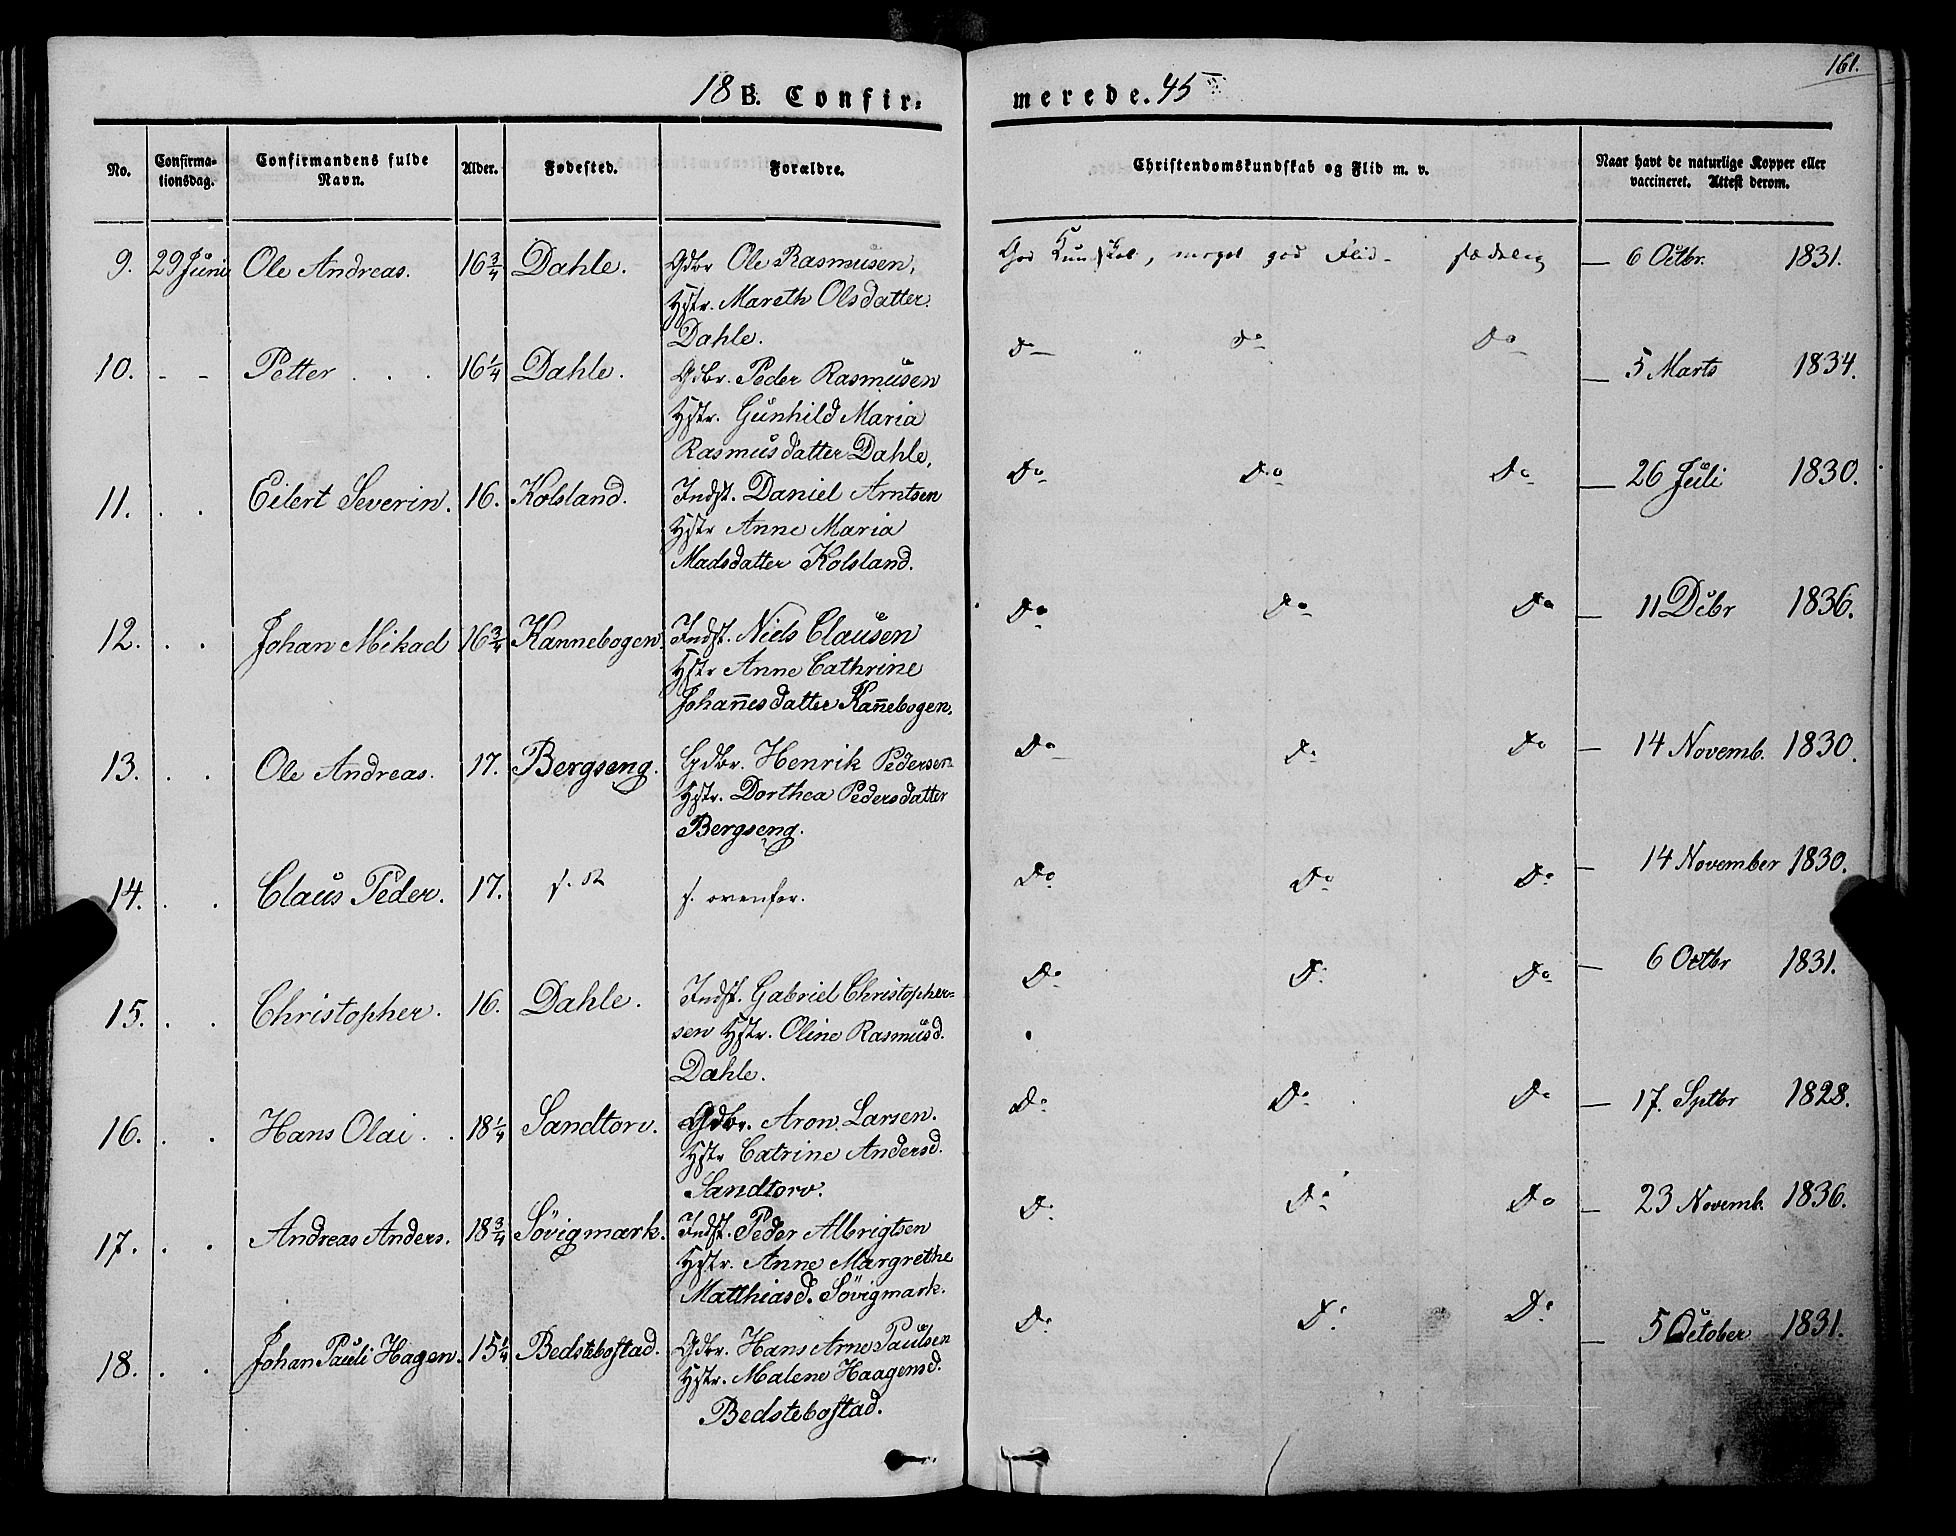 161.
18 B. Confir=merede. 45
No. Confirma-tionsdag. Confirmandens fulde Navn. Alder. Fødested. Forældre. Christendomskundskab og Flid m. v. Naar havt de naturlige Kopper eller vaccineret. Attest derom.
9. 29 Juni Ole Andreas. 16 3/4 Dahle. Gdbr Ole Rasmusen, God Kundskab, meget god Flid - sædelig — 6 Octbr. 1831.
Hstr. Mareth Olsdatter.
Dahle.
10. - - Petter . . . 16 1/4 Dahle. Gdbr. Peder Rasmusen Do Do Do — 5 Marts 1834.
Hstr. Gunhild Maria
Rasmusdatter Dahle,
11. . . Eilert Severin. 16. Kolsland. Indst. Daniel Arntsen Do Do Do — 26 Juli 1830.
Hstr Anne Maria
Madsdatter Kolsland.
12. . . Johan Mikal 16 3/4 Kannebogen. Indst. Niels Clausen Do Do Do — 11 Debr 1836.
Hstr Anne Cathrine
Johan̄esdatter Kan̄ebogen,
13. . . Ole Andreas. 17. Bergseng. Gdbr. Henrik Pedersen Do Do Do — 14 Novemb. 1830.
Hstr. Dorthea Pedersdatter
Bergseng.
14. . . Claus Peder. 17. s. ovenfor. Do Do Do — 14 November 1830.
15. . . Christopher. 16. Dahle. Indst. Gabriel Christopher= Do Do Do — 6 Octbr 1831.
sen Hstr. Oline Rasmusd.
Dahle.
16. . . Hans Olai . . 18 1/4 Sandtorv. Gdbr. Aron Larsen. Do Do Do — 17. Sptbr 1828.
Hstr Catrine Andersd.
Sandtorv.
17. . . Andreas Anders. 18 3/4 Sövigmark. Indst. Peder Albrigtsen Do Do Do — 23 Novemb. 1836.
Hstr. Anne Margrethe
Matthiasd. Sövigmark.
18. . . Johan Pauli Hagen. 15 1/4 Bedstebostad. Gdbr. Hans Arne Paulsen Do Do Do — 5 October 1831.
Hstr. Malene Haagensd.
Bedstebostad.